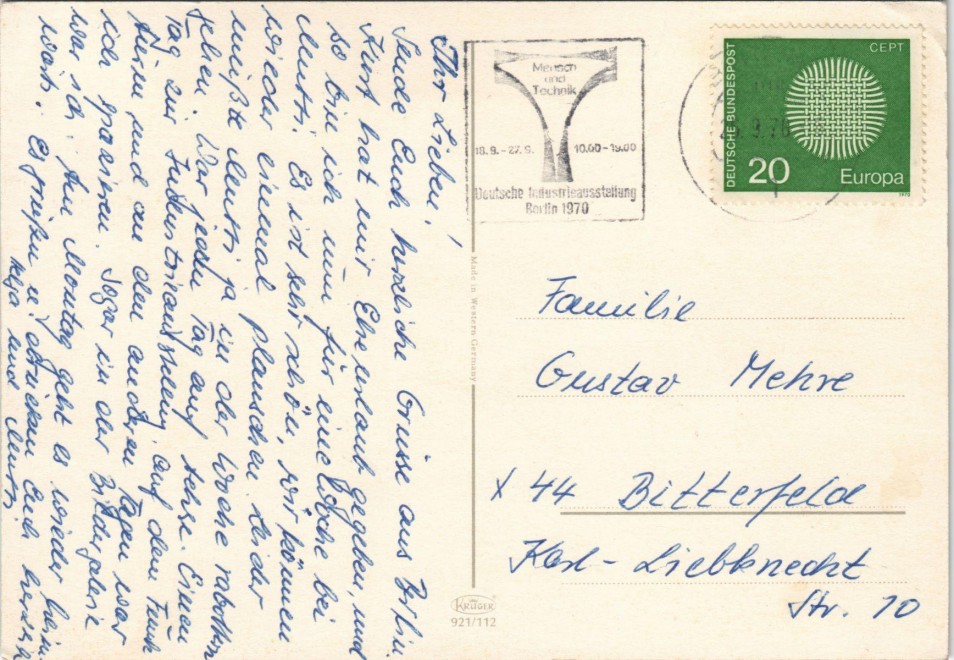 Ihr Lieben!
Sende Euch herzliche Grüsse aus Berlin.
Kurt hat mir Eheurlaub gegeben, und
so bin ich nun für eine Woche bei
Mutti. Es ist sehr schön, wir können
wieder einmal plauschen. Leider
mußte Mutti ja in der Woche
gehen. War jeden Tag auf Achse. Einen
Tag zur Industrieausstellung, auf dem Funk
turm und an den anderen Tagen war
ich spazieren. Sogar in der Bildergalerie
war ich. Am Montag geht es wieder heim
wärts. Es grüßen u. drücken Euch herzlich
und Mutti
Mensch
und
Technik
18.9.-27.9.
10.00-19.00
Deutsche Industrieausstellung
Berlin 1970
DEUTSCHE BUNDESPOST
CEPT
20
Europa
1970
.9.70
Made in Western Germany
Familie
Gustav Mehre
X 44 Bitterfeld
Karl-Liebknecht
Str. 10
KRÜGER
921/112